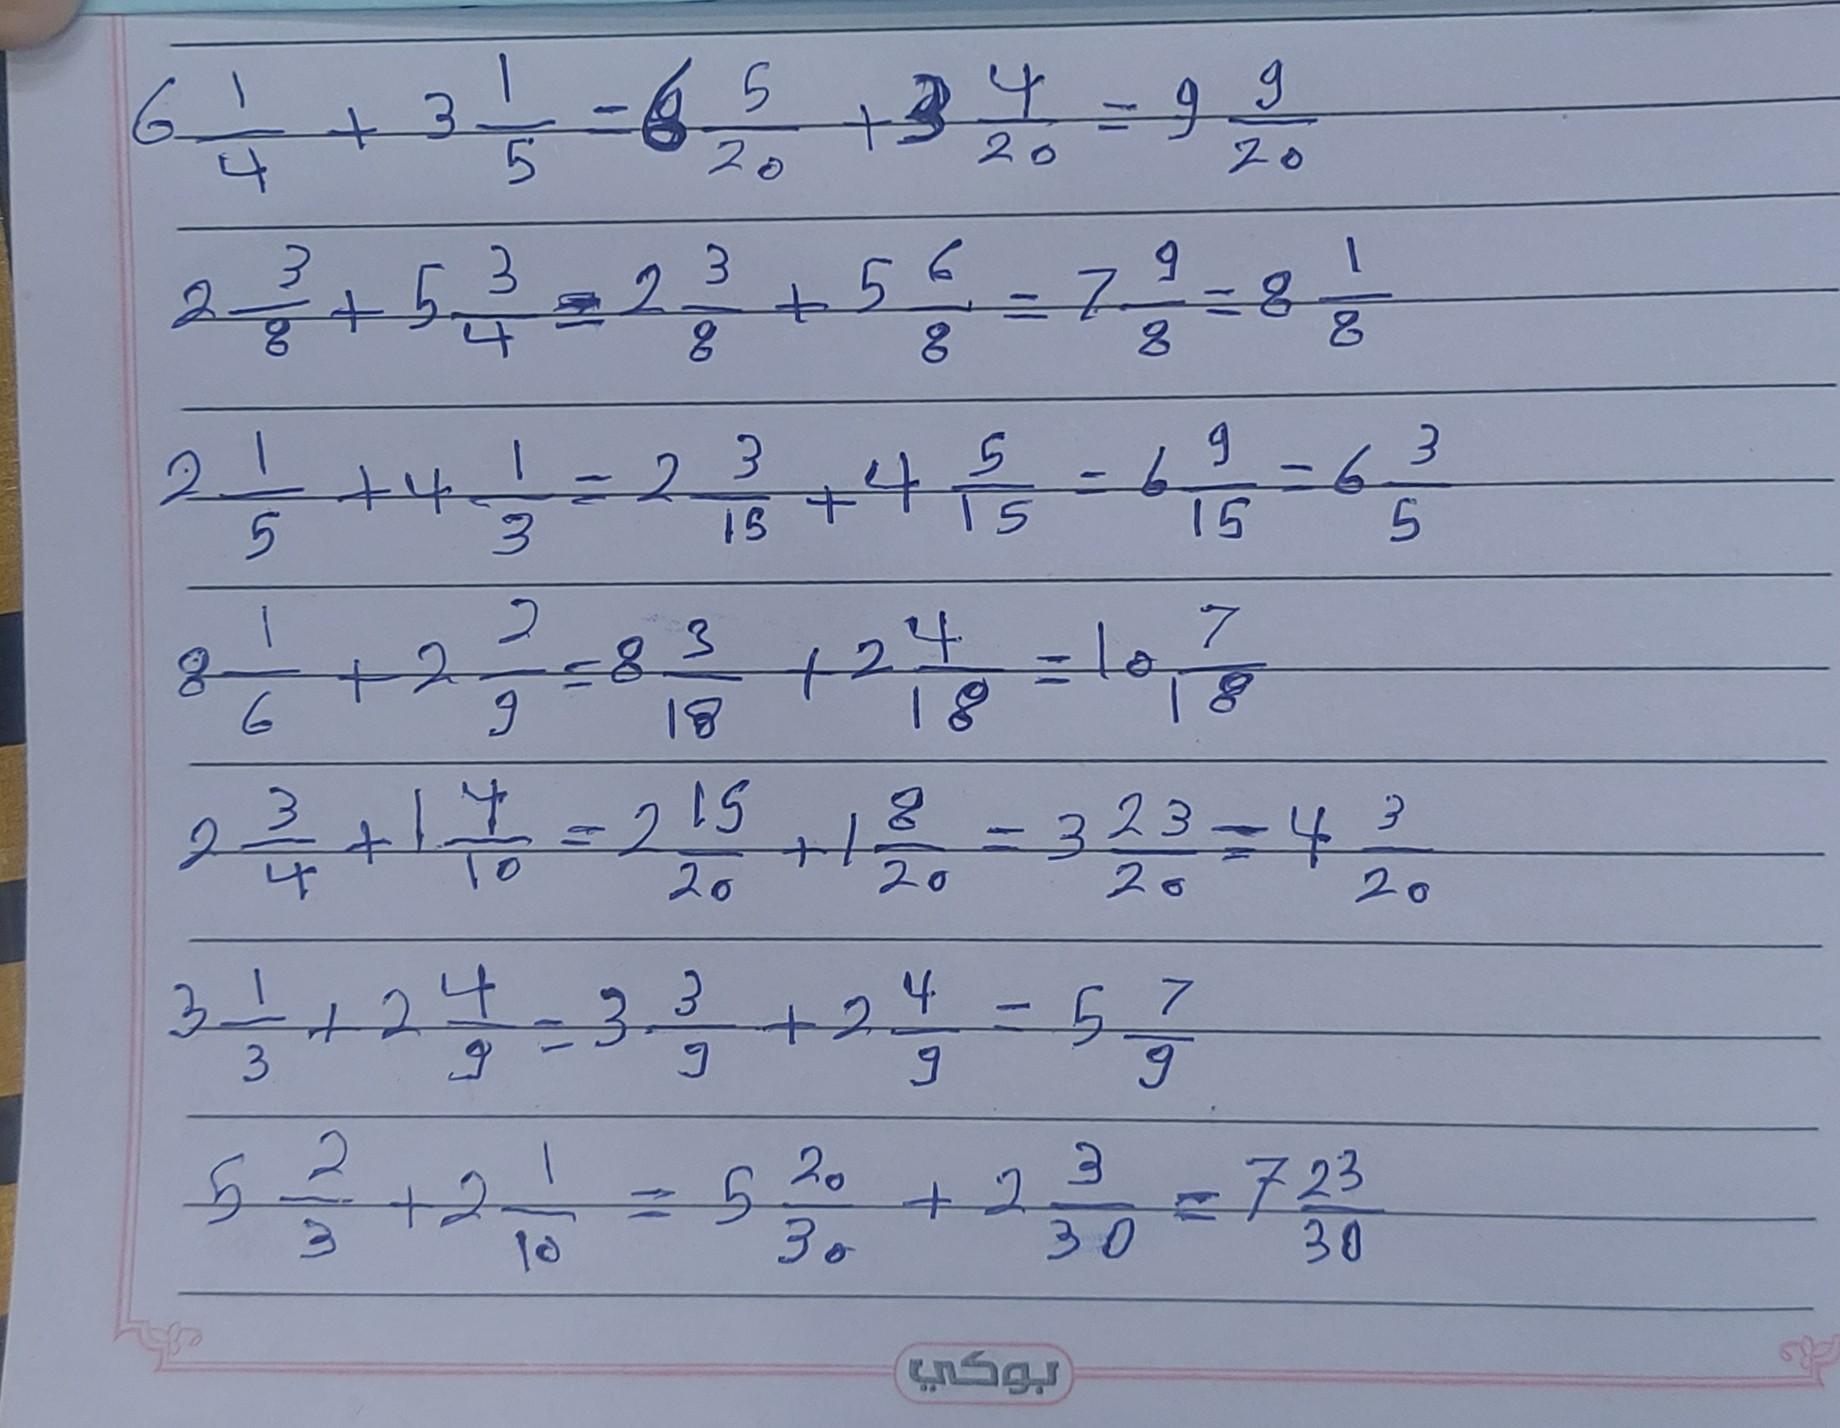 6 1/4 + 3 1/5 = 6 5/20 + 3 4/20 = 9 9/20
2 3/8 + 5 3/4 = 2 3/8 + 5 6/8 = 7 9/8 = 8 1/8
2 1/5 + 4 1/3 = 2 3/15 + 4 5/15 - 6 9/15 = 6 3/5
8 1/6 + 2 2/9 = 8 3/18 + 2 4/18 = 10 7/18
2 3/4 + 1 4/10 = 2 15/20 + 1 8/20 = 3 23/20 = 4 3/20
3 1/3 + 2 4/9 = 3 3/9 + 2 4/9 = 5 7/9
5 2/3 + 2 1/10 = 5 20/30 + 2 3/30 = 7 23/30
بوكي